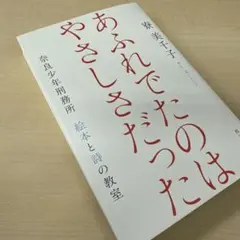 寮 美千子
あふれでたのは
やさしさだった
奈良少年刑務所 絵本と詩の教室